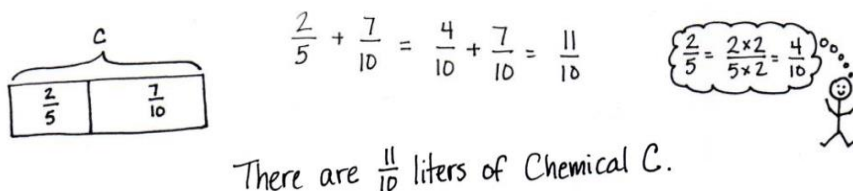 C
2/5 7/10
2/5 + 7/10 = 4/10 + 7/10 = 11/10
2/5 = 2×2/5×2 = 4/10
There are 11/10 liters of Chemical C.